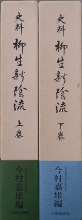 史料 柳生新陰流 下巻
今村嘉雄編
史料 柳生新陰流 上巻
今村嘉雄編